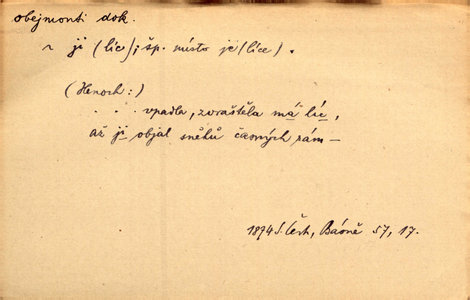 obejmouti dok.
~ ji (líc); šp. místo je (líce).
(Henoch:)
. . . vpadla, zvraštěla má líc,
až ji objal sněhů časných rám —
1874 S. Čech, Básně 57, 17.